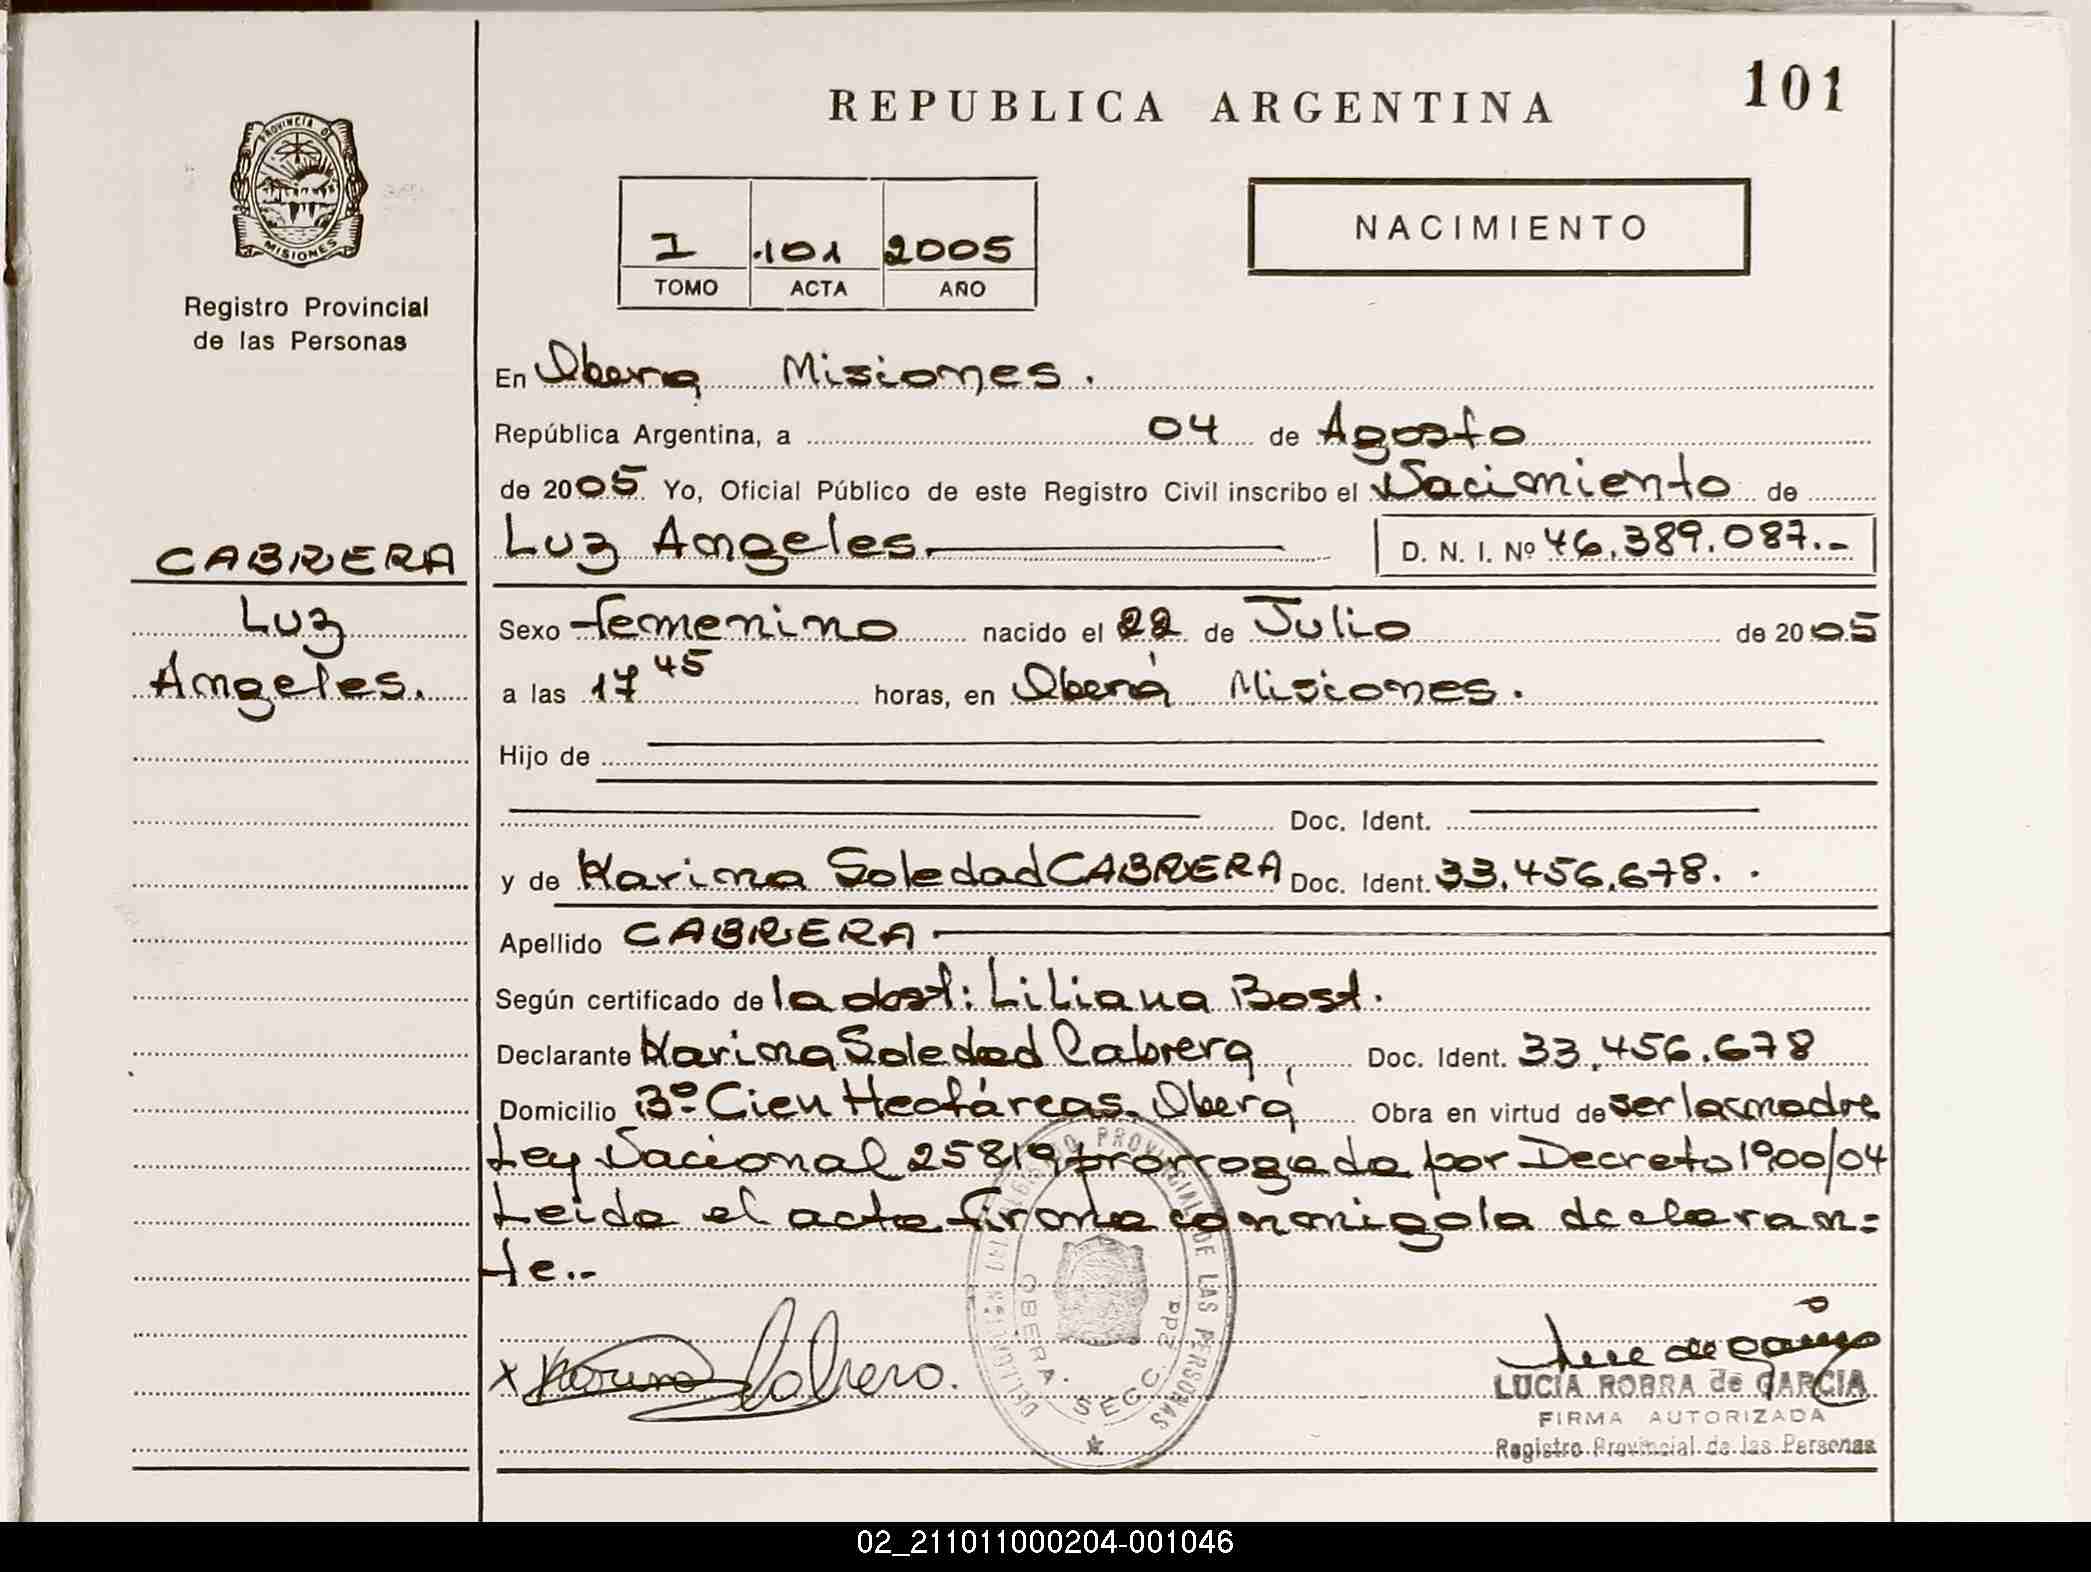 101
REPUBLICA ARGENTINA
PROVINCIA DE
MISIONES
Registro Provincial
de las Personas
I .101 2005
TOMO ACTA AÑO
NACIMIENTO
En Oberá Misiones.
República Argentina, a 04 de Agosto
de 2005 Yo, Oficial Público de este Registro Civil inscribo el Nacimiento de
Luz Angeles D. N. I. Nº 46.389.087.-
CABRERA
Luz
Angeles.
Sexo femenino nacido el 22 de Julio de 2005
a las 17 45 horas, en Oberá Misiones.
Hijo de
Doc. Ident.
y de Karina Soledad CABRERA Doc. Ident. 33.456.678.
Apellido CABRERA
Según certificado de la obst: Liliana Bost.
Declarante Karina Soledad Cabrera Doc. Ident. 33.456.678
Domicilio Bº Cien Hectáreas. Oberá Obra en virtud de ser la madre
Ley Nacional 25819 prorrogada por Decreto 1900/04
Leida el acta firma conmigo la declaran=
te..-
x Karina Cabrera.
DELEGACION DEL REGISTRO PROVINCIAL DE LAS PERSONAS
OBERA. SECC. 2da
LUCIA ROBRA de GARCIA
FIRMA AUTORIZADA
Registro Provincial de las Personas
02_211011000204-001046